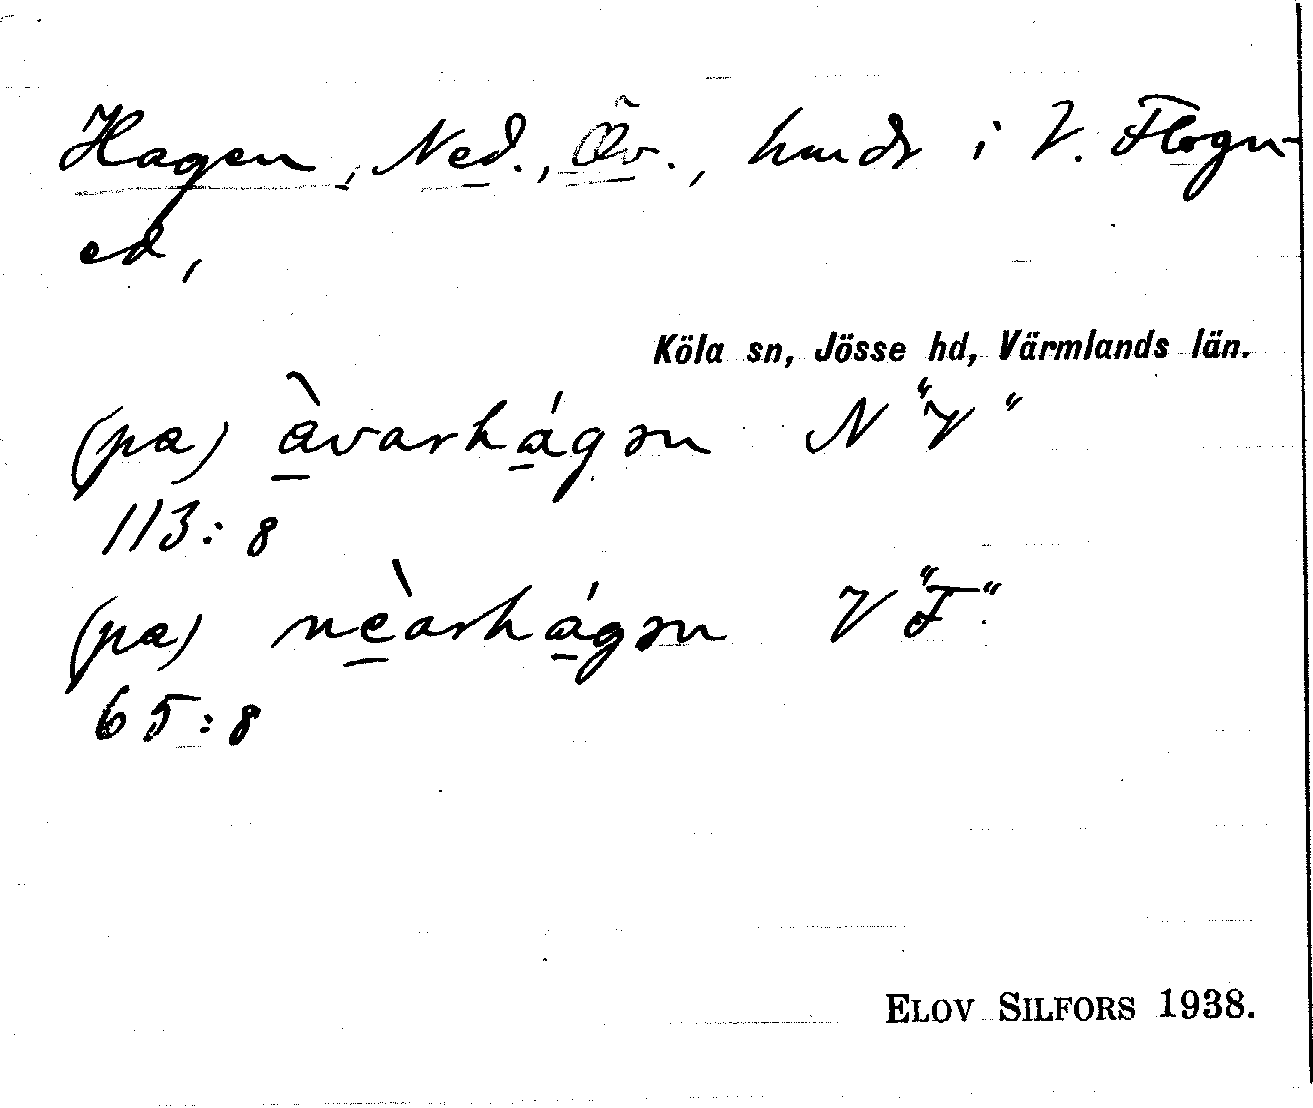 Hagen, Ned., Öv., hmdr i V. Flogn-
ed,
Köla sn, Jösse hd, Värmlands län.
(pa) àvarhágən N "V"
113:8
(pa) nèarhágən V "F."
65:8
ELOV SILFORS 1938.